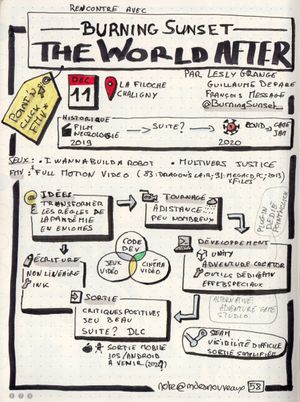 RENCONTRE AVEC
BURNING SUNSET
THE WORLD AFTER
POINT'N
CLICK
FMV
DEC
11
LA FILOCHE
CHALIGNY
PAR LESLY GRANGE
GUILLAUME
FRANÇOIS MESSAGE
@BurningSunset
HISTORIQUE
FILM
NECROLOGIE
2019
SUITE?
COVID
GAME
JAM
2020
JEUX: • I WANNA BUILD A ROBOT • MULTIVERS JUSTICE
FMV: FULL MOTION VIDEO (83: DRAGON'S LAIR; 91: MEGACD, PC, 2013)
XFILES
IDÉE:
TRANSFORMER
LES RÈGLES DE
LA PANDÉMIE
EN ENIGMES
TOURNAGE
A DISTANCE...
PEU NOMBREUX
PLUGIN
DÉDIÉ
ÉCRITURE
NON LINEAIRE
INK
CODE
DEV
JEUX
VIDÉO
CINÉMA
VIDÉO
DÉVELOPPEMENT
UNITY
ADVENTURE CREATOR
OUTILS DÉDIÉ FMV
EFFETS SPECIAUX
ALTERNATIVE
ADVENTURE GAME
STUDIO
SORTIE
CRITIQUES POSITIVES
JEU BEAU
SUITE? DLC
SORTIE MOBILE
IOS/ANDROID
A VENIR
STEAM
VISIBILITÉ DIFFICILE
SORTIE SIMPLIFIÉE
note@mdesnouveaux 58